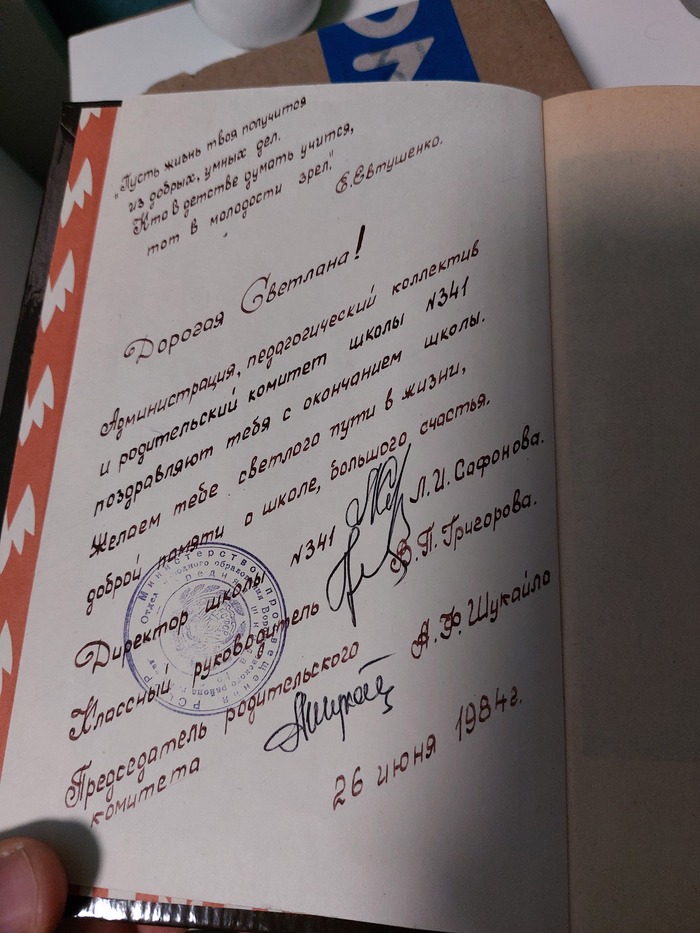 „Пусть жизнь твоя получится
из добрых, умных дел.
Кто в детстве думать учится,
тот в молодости зрел."
Е.Евтушенко.
Дорогая Светлана!
Администрация, педагогический коллектив
и родительский комитет школы N341
поздравляют тебя с окончанием школы.
Желаем тебе светлого пути в жизни,
доброй памяти о школе, большого счастья.
Директор школы N341 Л.И. Сафонова.
Классный руководитель В.П. Григорова.
Председатель родительского А.Ф. Шукайло
комитета
26 июня 1984г.
Министерство просвещения РСФСР
Отдел народного образования
средняя школа